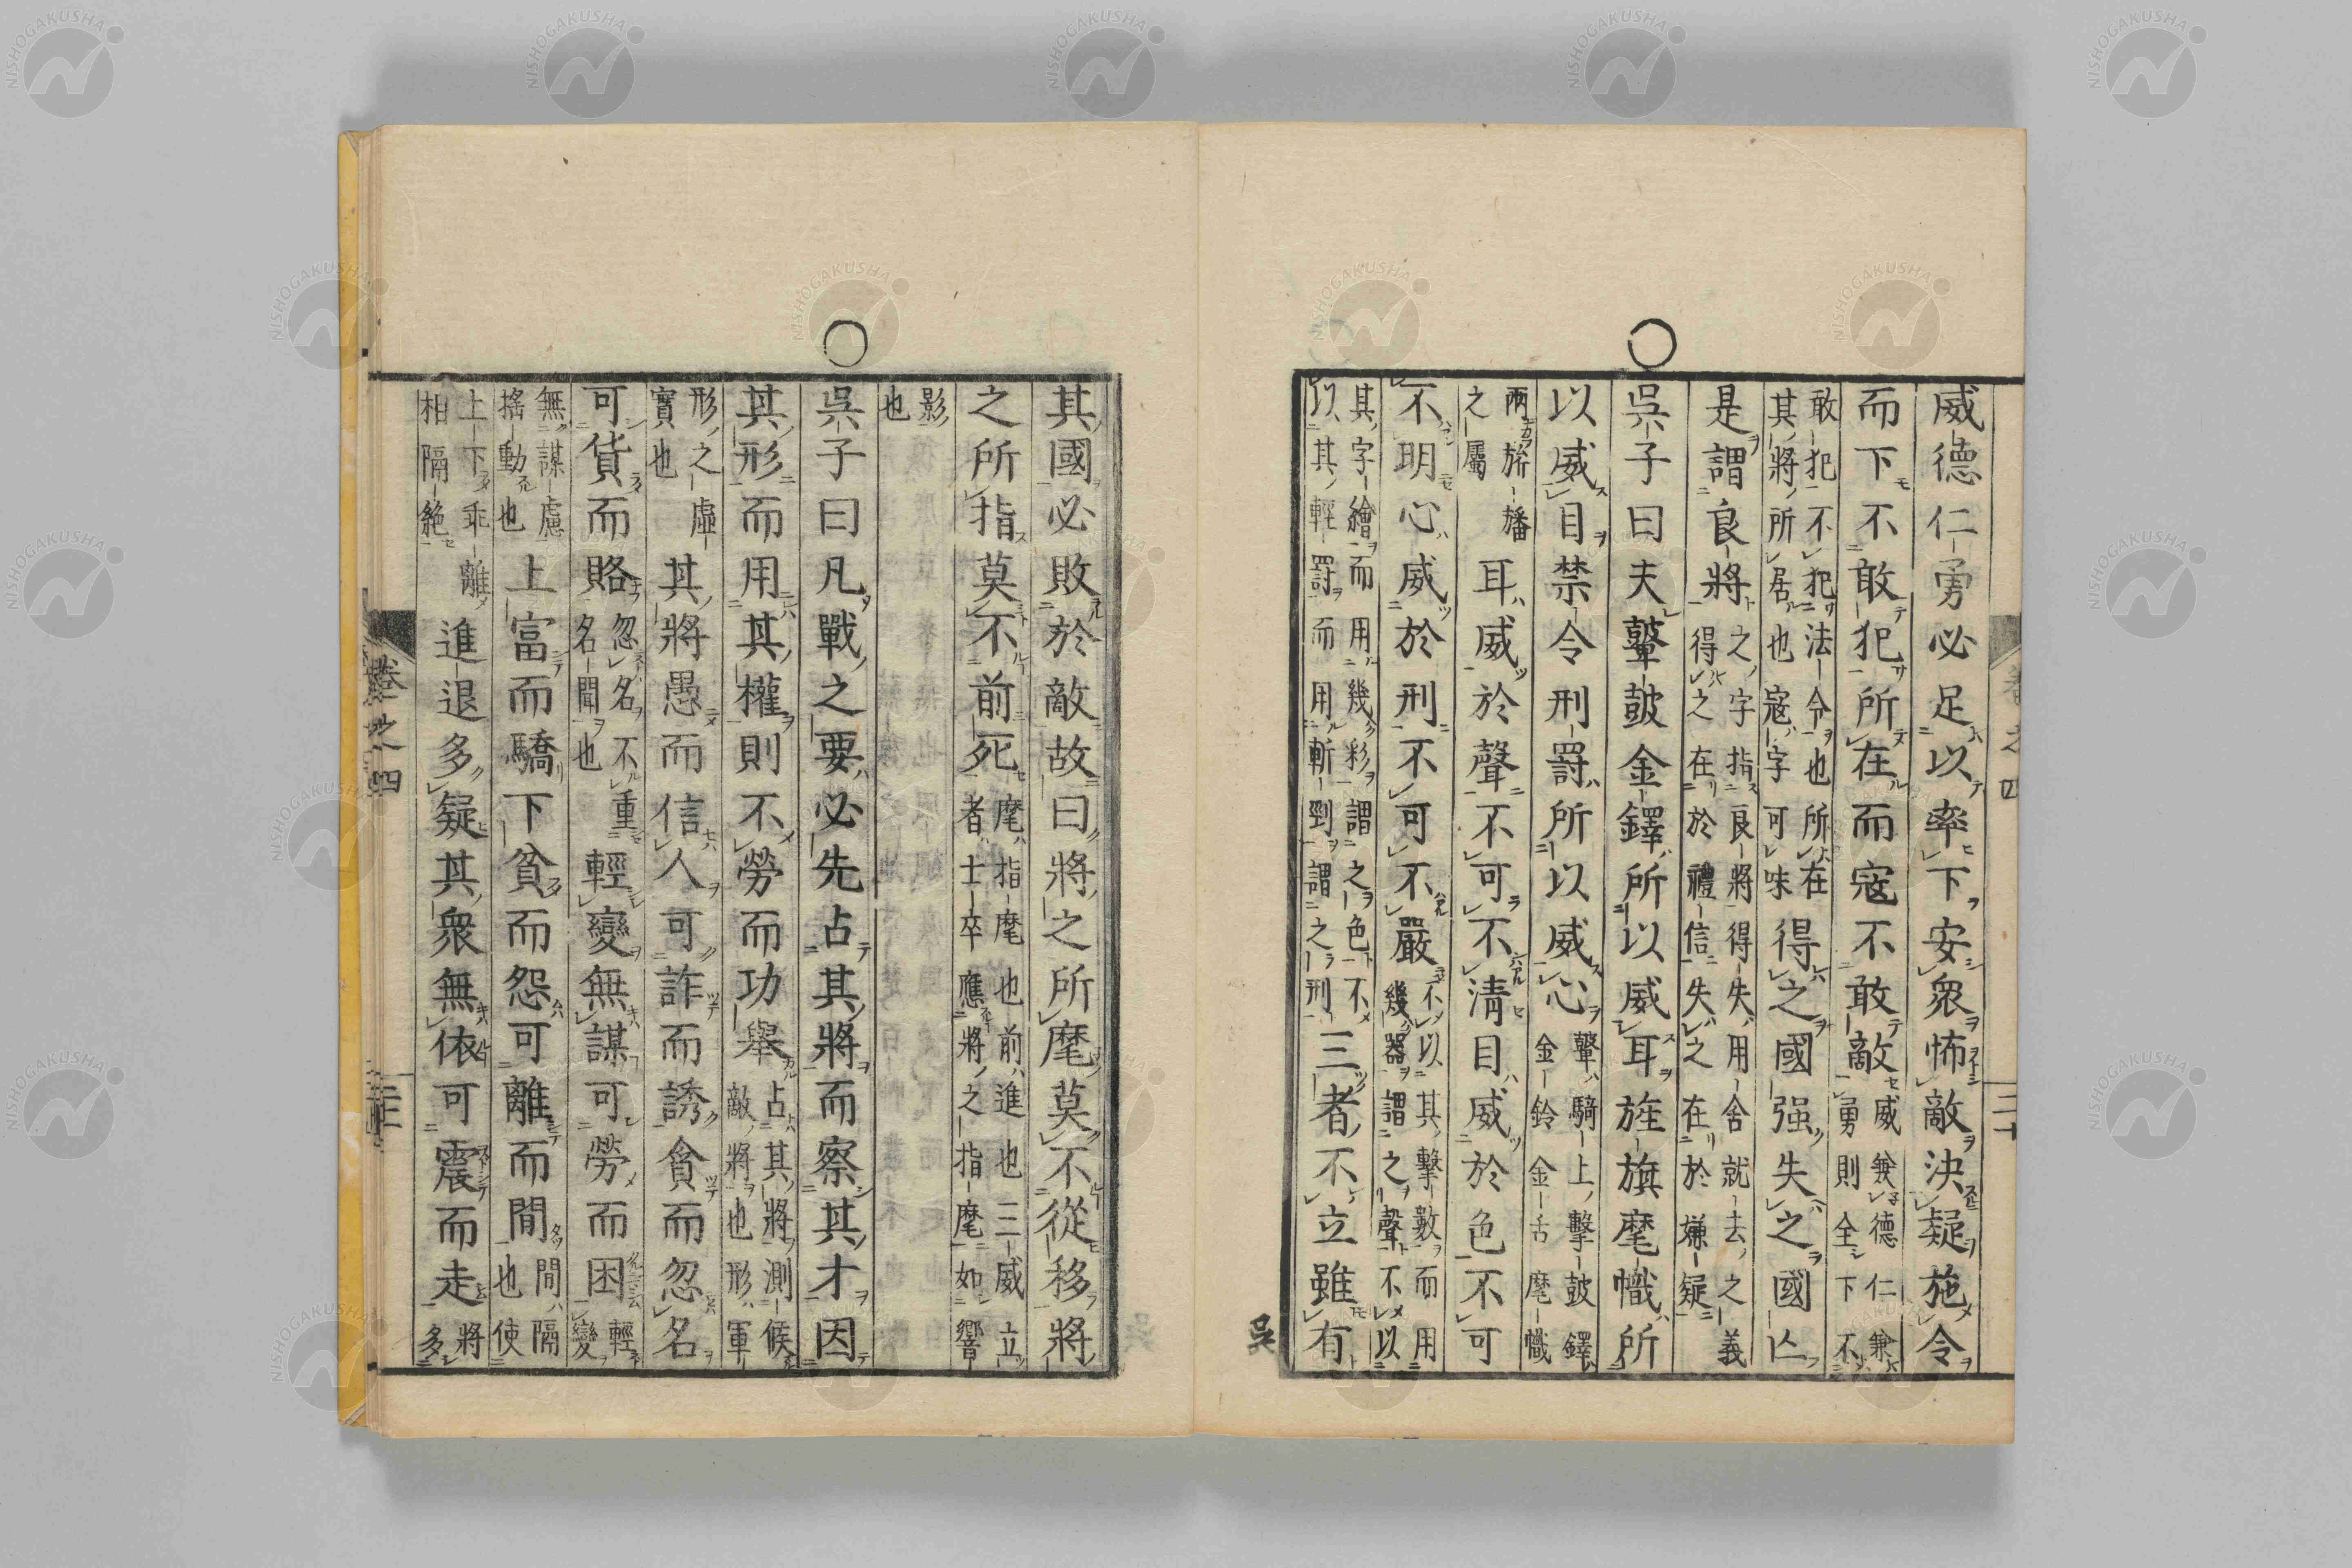 威德仁勇必足以率下安衆怖敵決疑施令
而下不敢犯所在而寇不敢敵威兼德仁兼勇則全下不
敢犯不犯法令也所在其將所居也寇字可味得之國强失之國亾
是謂良將之字指良將得失用舍就去之義得之在於禮信失之在於嫌疑
吳子曰夫鼙鼓金鐸所以威耳旌旗麾幟所
以威目禁令刑罰所以威心鼙騎上擊鼓鐸金鈴金舌麾幟
兩旂旛之屬耳威於聲不可不清目威於色不可
不明心威於刑不可不嚴不以其擊數而用幾器謂之聲不以
其字繪而用幾彩謂之色不以其輕罰而用斬剄謂之刑三者不立雖有
吳
其國必敗於敵故曰將之所麾莫不從移將
之所指莫不前死麾指麾也前進也三威立者士卒應將之指麾如響
影也
吳子曰凡戰之要必先占其將而察其才因
其形而用其權則不勞而功舉占其將測候敵將也形軍
形之虛實也其將愚而信人可詐而誘貪而忽名
可貨而賂忽名不重名聞也輕變無謀可勞而困輕變
無謀慮搖動也上富而驕下貧而怨可離而間間隔也使
上下乖離相隔絕進退多疑其衆無依可震而走將多
卷之四
NISHOGAKUSHA